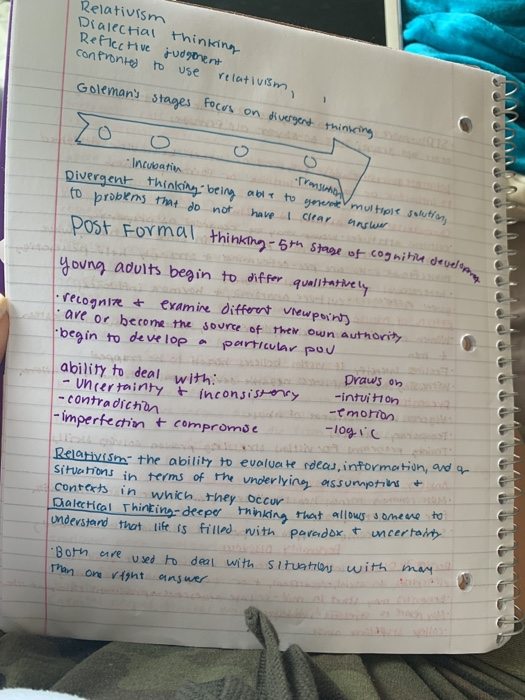 Relativism
Dialectial thinking
Reflective judgment
confronted to use relativism,
Goleman's stages focus on divergent thinking
·Incubatin
·Transumon
Divergent thinking-being able to generate multiple solutions
to problems that do not have 1 clear answer
Post Formal thinking-5th stage of cognitive development
young adults begin to differ qualitatively
·recognize + examine different viewpoints
·are or become the source of their own authority
·begin to develop a particular pov
ability to deal with:
-uncertainty + inconsistency
-contradiction
-imperfection + compromose
Draws on
-intuition
-emotion
-logic
Relativism-the ability to evaluate ideas, information, and
situations in terms of the underlying assumptions +
contexts in which they occur
Dialectical Thinking-deeper thinking that allows someone to
understand that life is filled with paradox + uncertainty
·Both are used to deal with situations with may
than one right answer